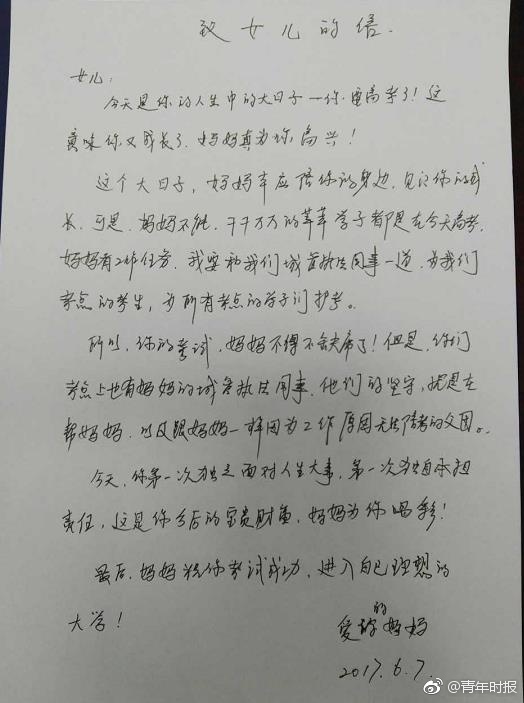 致女儿的信.
女儿：
今天是你的人生中的大日子一你要高考了！这
意味你又成长了.妈妈真为你高兴！
这个大日子，妈妈本应陪你的身边，见证你的成
长.可是.妈妈不能.千千万万的莘莘学子都是在今天高考.
妈妈有工作任务.我要和我们城管执法同事一道，为我们
考点的考生，为所有考点的学子们护考。
所以.你的考试，妈妈不得不缺席了！但是.你们
考点上也有妈妈的城管执法同事.他们的坚守，就是在
帮妈妈.以及跟妈妈一样因为工作原因无法陪考的父母。
今天，你第一次独立面对人生大事，第一次独自承担
责任，这是你今后的宝贵财富，妈妈为你喝彩！
最后.妈妈祝你考试成功，进入自己理想的
大学！
爱你的妈妈
2017.6.7.
@青年时报